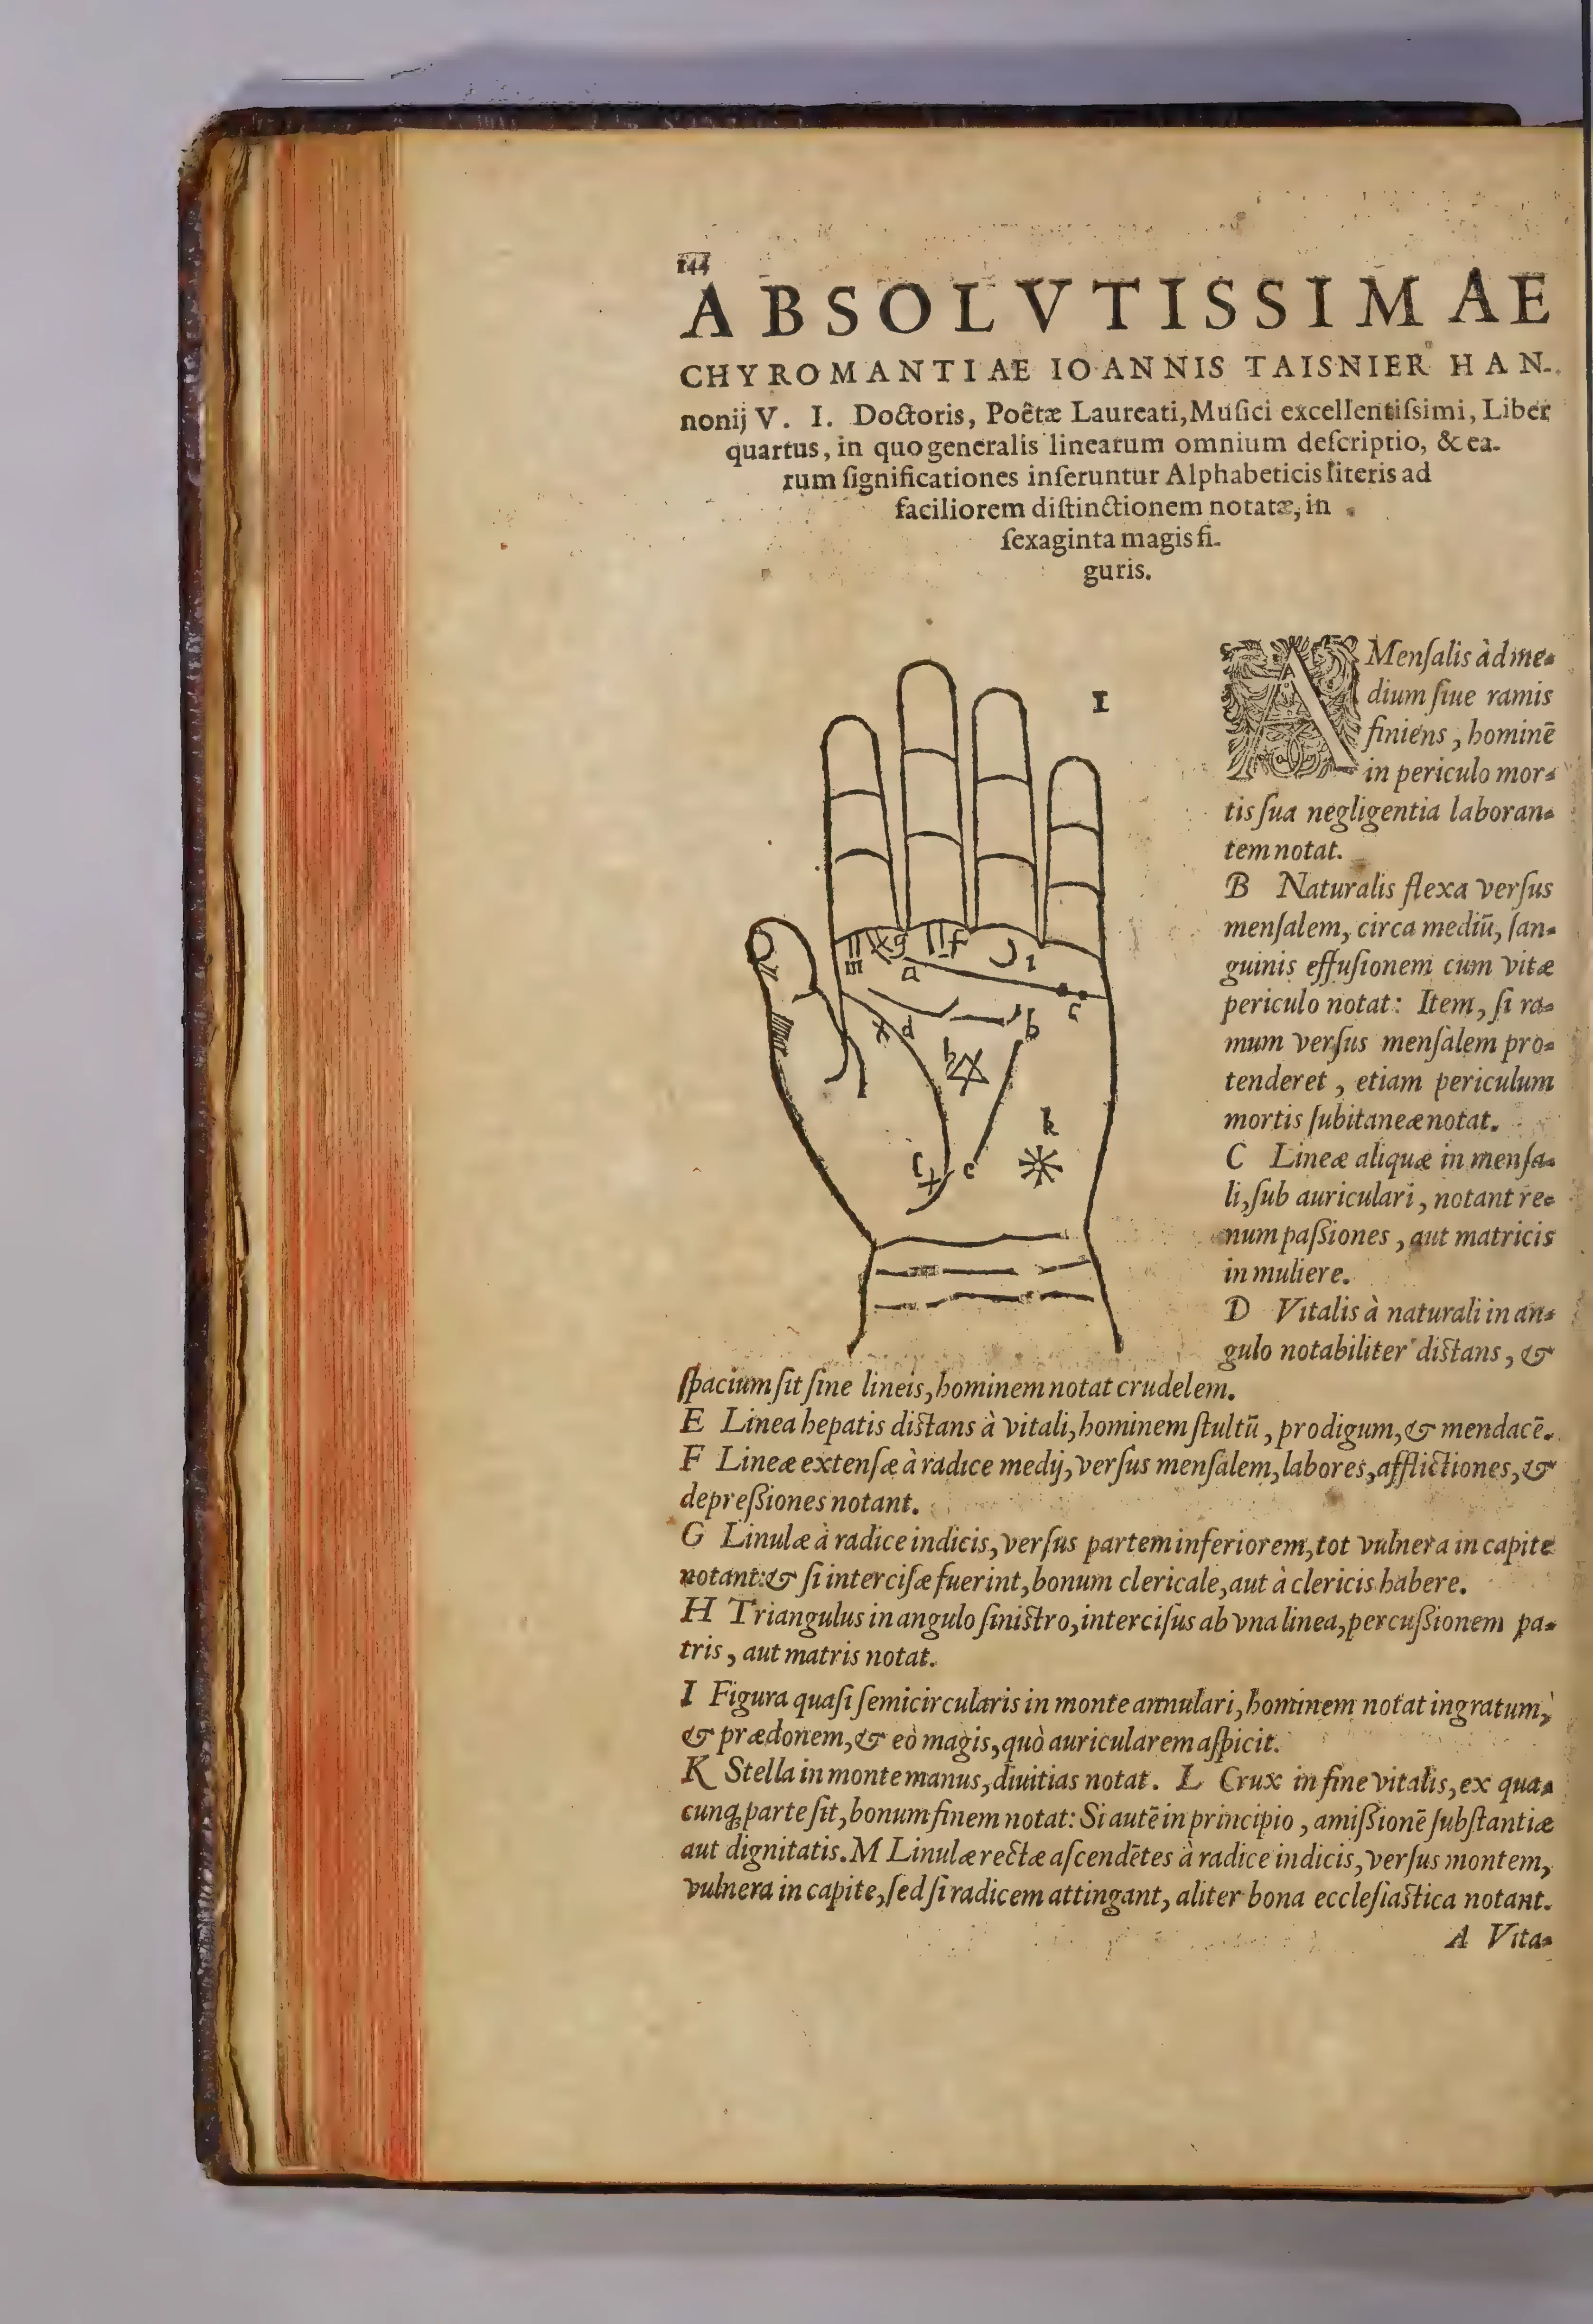 144
ABSOLVTISSIMAE
CHYROMANTIAE IOANNIS TAISNIER HAN-
nonij V. I. Doctoris, Poêtæ Laureati, Muſici excellentiſsimi, Liber
quartus, in quo generalis linearum omnium deſcriptio, & ea-
rum ſignificationes inſeruntur Alphabeticis literis ad
faciliorem diſtinctionem notatæ, in
ſexaginta magis fi-
guris.
I
m g f a i c
d b h
k
l e
A Menſalis àd me-
dium ſiue ramis
finiens, hominē
in periculo mor-
tis ſua negligentia laboran-
tem notat.
B Naturalis flexa verſus
menſalem, circa mediū, ſan-
guinis effuſionem cum vitæ
periculo notat: Item, ſi ra-
mum verſus menſalem pro-
tenderet, etiam periculum
mortis ſubitaneæ notat.
C Lineæ aliquæ in menſa-
li, ſub auriculari, notant re-
num paſsiones, aut matricis
in muliere.
D Vitalis à naturali in an-
gulo notabiliter diſtans, &
ſpacium ſit ſine lineis, hominem notat crudelem.
E Linea hepatis diſtans à vitali, hominem ſtultū, prodigum, & mendacē.
F Lineæ extenſæ à radice medij, verſus menſalem, labores, afflictiones, &
depreſsiones notant.
G Linulæ à radice indicis, verſus partem inferiorem, tot vulnera in capite
notant: & ſi interciſæ fuerint, bonum clericale, aut à clericis habere.
H Triangulus in angulo ſiniſtro, interciſus ab vna linea, percuſsionem pa-
tris, aut matris notat.
I Figura quaſi ſemicircularis in monte annulari, hominem notat ingratum,
& prædonem, & eò magis, quò auricularem aſpicit.
K Stella in monte manus, diuitias notat. L Crux in fine vitalis, ex qua-
cunq; parte ſit, bonum finem notat: Si autē in principio, amiſsionē ſubſtantiæ
aut dignitatis. M Linulæ rectæ aſcendētes à radice indicis, verſus montem,
vulnera in capite, ſed ſi radicem attingant, aliter bona eccleſiaſtica notant.
A Vita-